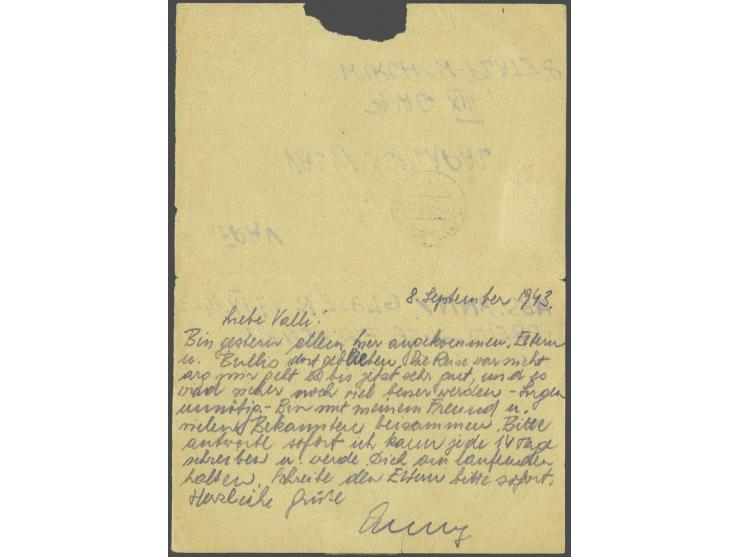 8. September 1943.
Liebe Valli!
Bin gestern allein hier angekommen, Eltern
u. Bullis dort geblieben. Die Reise war nicht
arg mir geht es bis jetzt sehr gut, und es
wird sicher noch viel besser werden - Sorgen
unnötig - Bin mit meinem Freund u.
vielen Bekannten beisammen. Bitte
antworte sofort ich kann jede 14 Tage
schreiben u. werde Dich am laufenden
halten. Schreibe den Eltern bitte sofort.
Herzliche Grüße